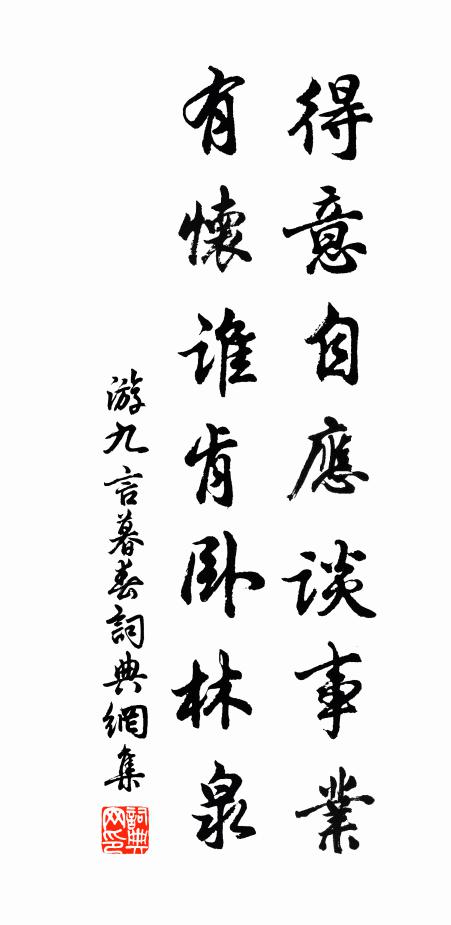 得意自應談事業
有懷誰肯卧林泉
游九言暮春詞典網集
詞典網印